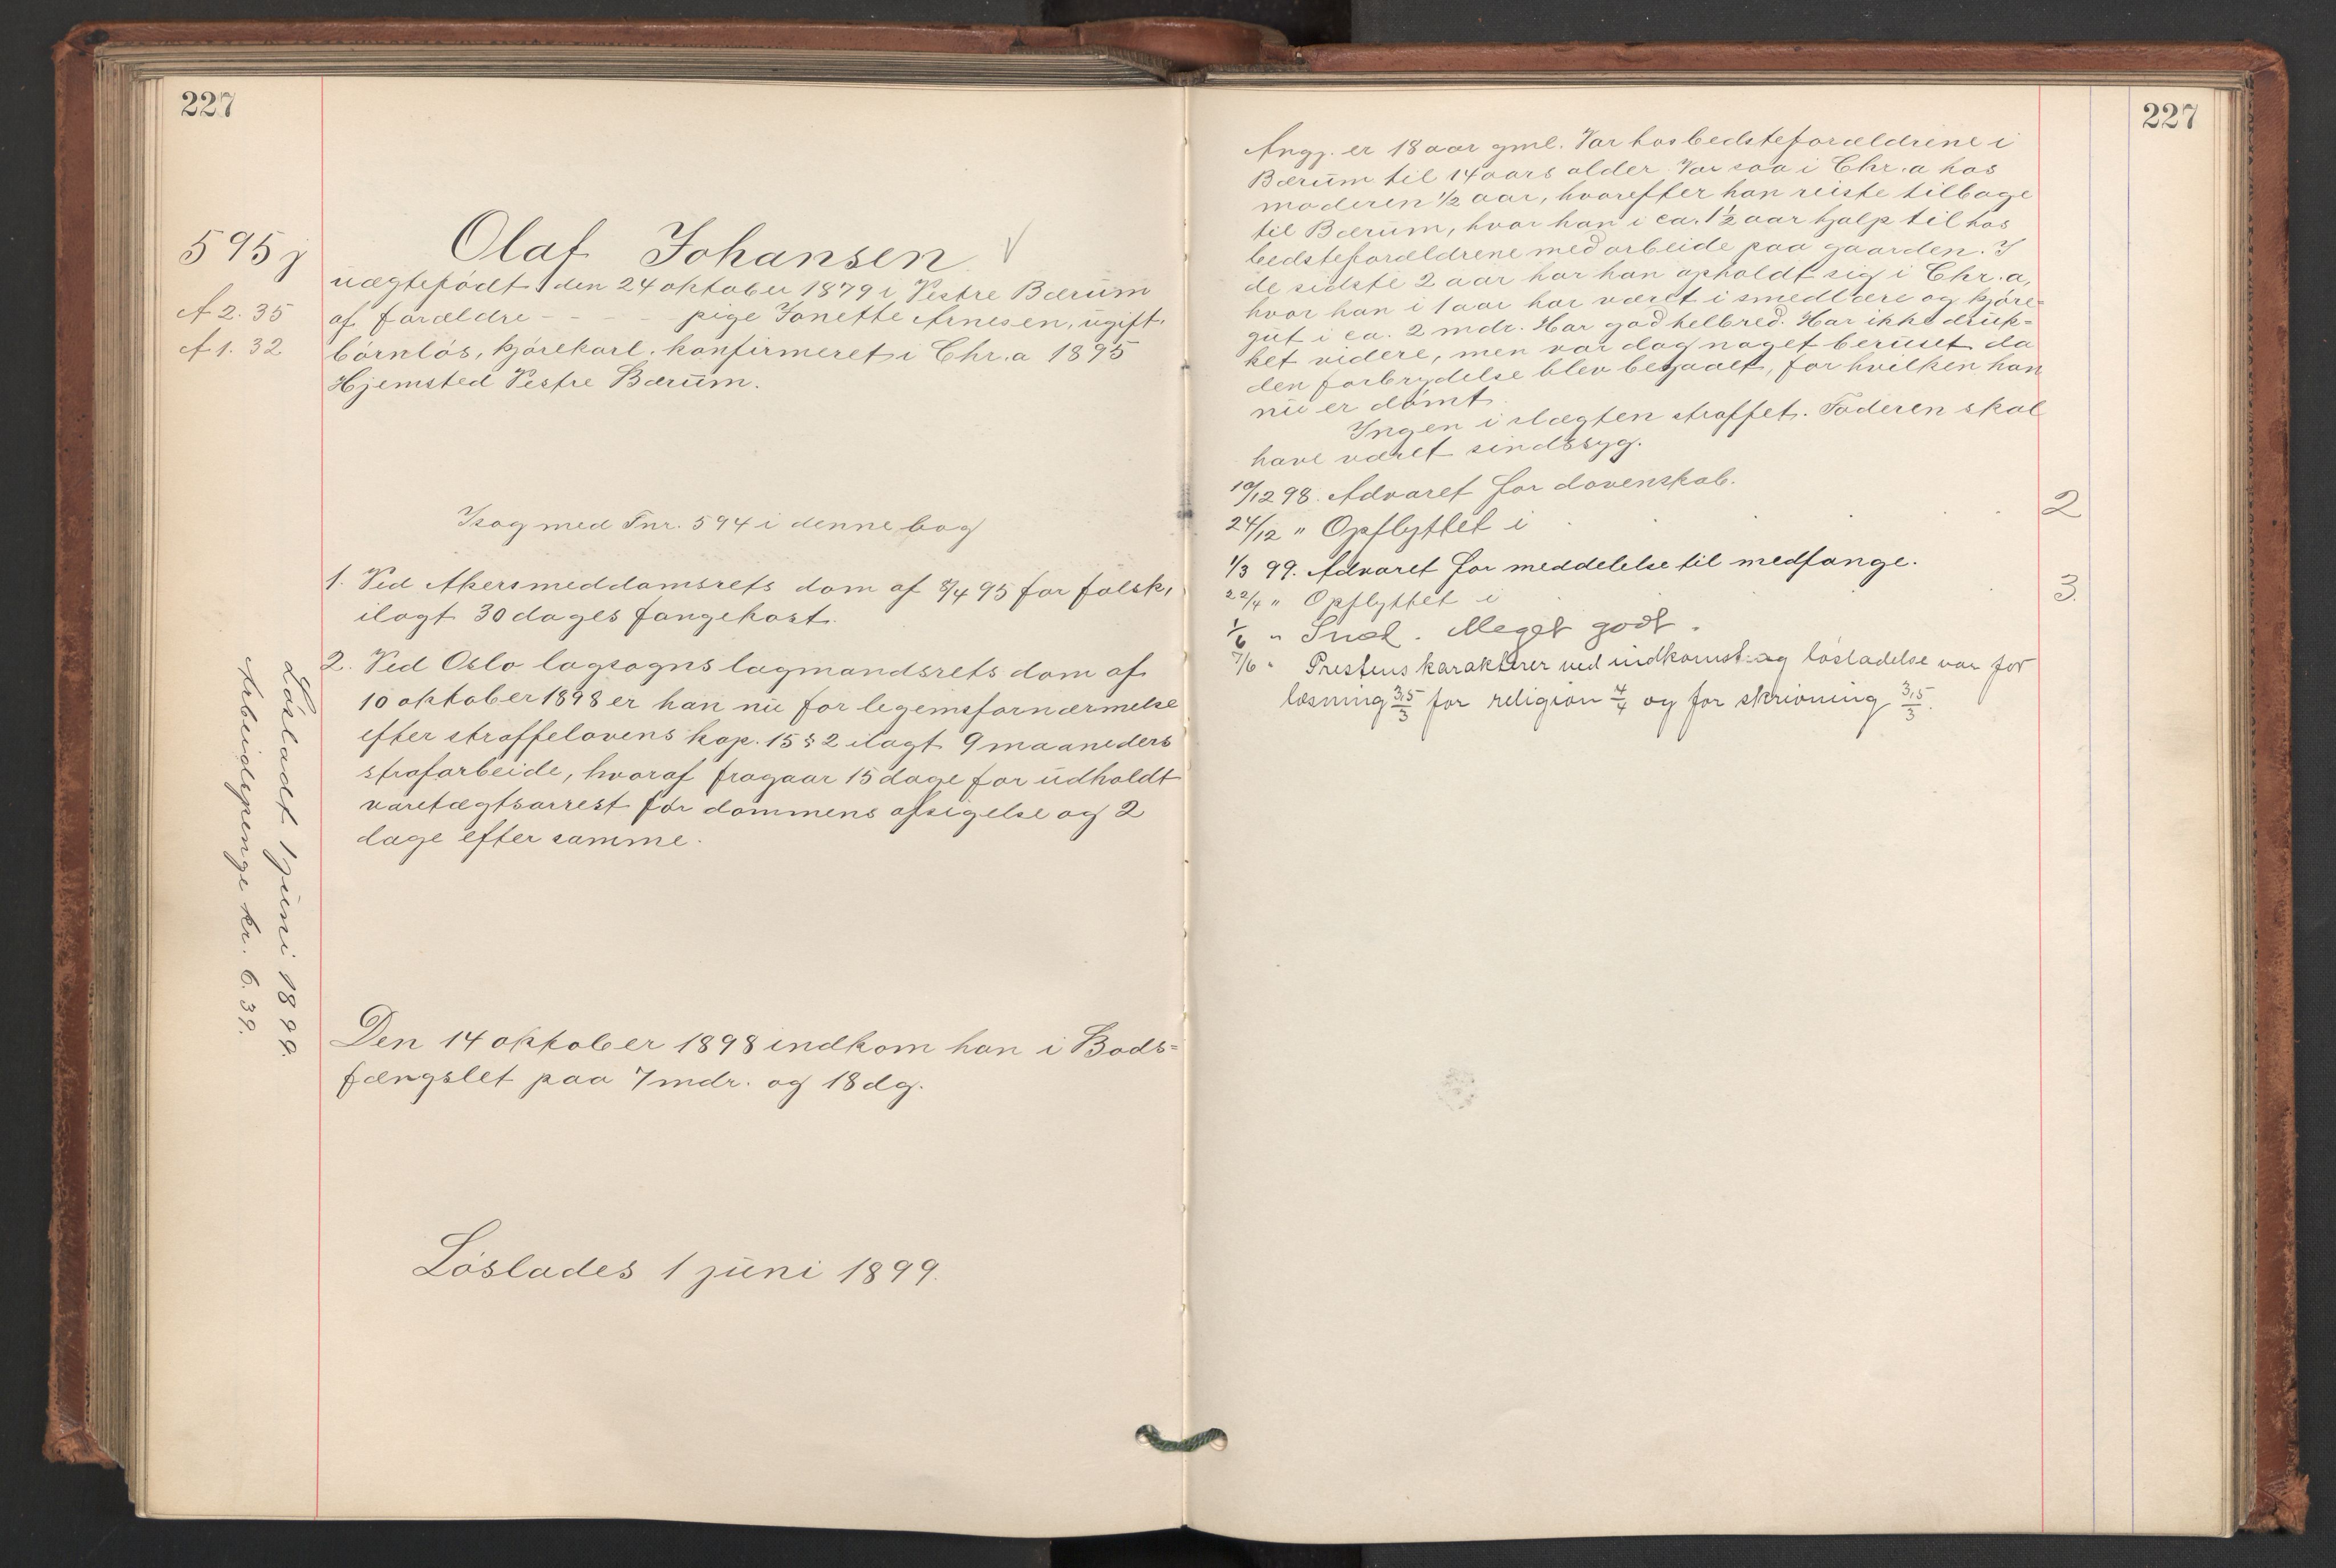 227
595 j
A 2. 35
A 1. 32
Olaf Johansen
uægtefødt den 24 oktober 1879 i Vestre Bærum
af forældre - - - - pige Jonette Arnesen, ugift,
børnløs, kjørekarl, konfirmeret i Chr.a 1895
Hjemsted Vestre Bærum.
I sag med Fnr. 594 i denne bog
1. Ved Akersmeddomsrets dom af 8/4 95 for falsk,
ilagt 30 dages fangekost.
2. Ved Oslo lagsogns lagmandsrets dom af
10 oktober 1898 er han nu for legemsfornærmelse
efter straffelovens kap. 15 § 2 ilagt 9 maaneders
strafarbeide, hvoraf fragaar 15 dage for udholdt
varetægtsarrest før dommens afsigelse og 2
dage efter samme.
Løsladt 1 juni 1899.
Arbeidspenge kr. 6.39.
Den 14 oktober 1898 indkom han i Bods=
fængslet paa 7 mdr. og 18 dg.
Løslades 1 juni 1899.
227
Angj. er 18 aar gml. Var hos bedsteforældrene i
Bærum til 14 aars alder. Var saa i Chr.a hos
moderen 1/2 aar, hvorefter han reiste tilbage
til Bærum, hvor han i ca. 1 1/2 aar hjalp til hos
bedsteforældrene med arbeide paa gaarden. I
de sidste 2 aar har han opholdt sig i Chr.a,
hvor han i 1 aar har været i smedlære og kjøre=
gut i ca. 2 mdr. Har god helbred. Har ikke druk=
ket videre, men var dog noget beruset da
den forbrydelse blev begaaet, for hvilken han
nu er dømt.
Ingen i slægten straffet. Faderen skal
have været sindssyg.
10/12 98. Advaret for dovenskab.
24/12 " Opflyttet i 2
1/3 99. Advaret for meddelelse til medfange.
22/4 " Opflyttet i 3.
1/6 " . Meget godt.
7/6 " Prestens karakterer ved indkomst og løsladelse var for
læsning 3,5/3 for religion 4/4 og for skrivning 3,5/3.